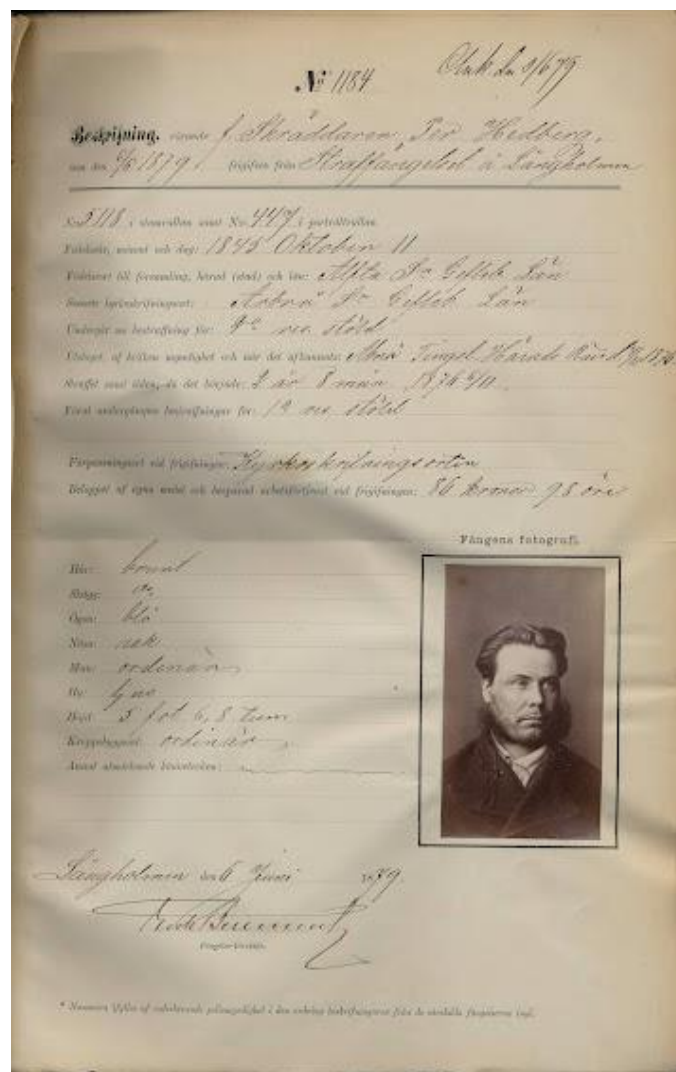 Ank. den 9/6 79
No 1184
Beskrifning, rörande f. Skräddaren Per Hedberg,
som den 6/6 1879 frigifven från Straffängelset å Långholmen
No 5118 i stamrullan samt No 447 i porträttrullan.
Födelseår, månad och dag: 1845 Oktober 11
Födelseort till församling, härad (stad) och län: Alfta Sn Gefleb. Län
Senaste kyrkoskrifningsort: Arbrå Sn Gefleb. Län
Undergår nu bestraffning för: 2a res. stöld
Utslaget, af hvilken myndighet och när det afkunnats: Tingsl. Härads Rätt 1876
Straffet samt tiden, då det började: 2 år 8 mån 1876
Förut undergångna bestraffningar för: 1a res. stöld
Förpassningsort vid frigifningen: Kyrkoskrifningsorten
Beloppet af egna medel och besparad arbetsförtjenst vid frigifningen: 86 kronor 98 öre
Fångens fotografi.
Hår: brunt
Skägg: do
Ögon: blå
Näsa: rak
Mun: ordinär
Hy: ljus
Höjd: 5 fot 6,8 tum
Kroppsbyggnad: ordinär
Annat utmärkande kännetecken:
Långholmen den 6 Juni 1879.
* Nummern ifylles af vederbörande polismyndighet i den ordning beskrifningarne från de särskilda fängelserna